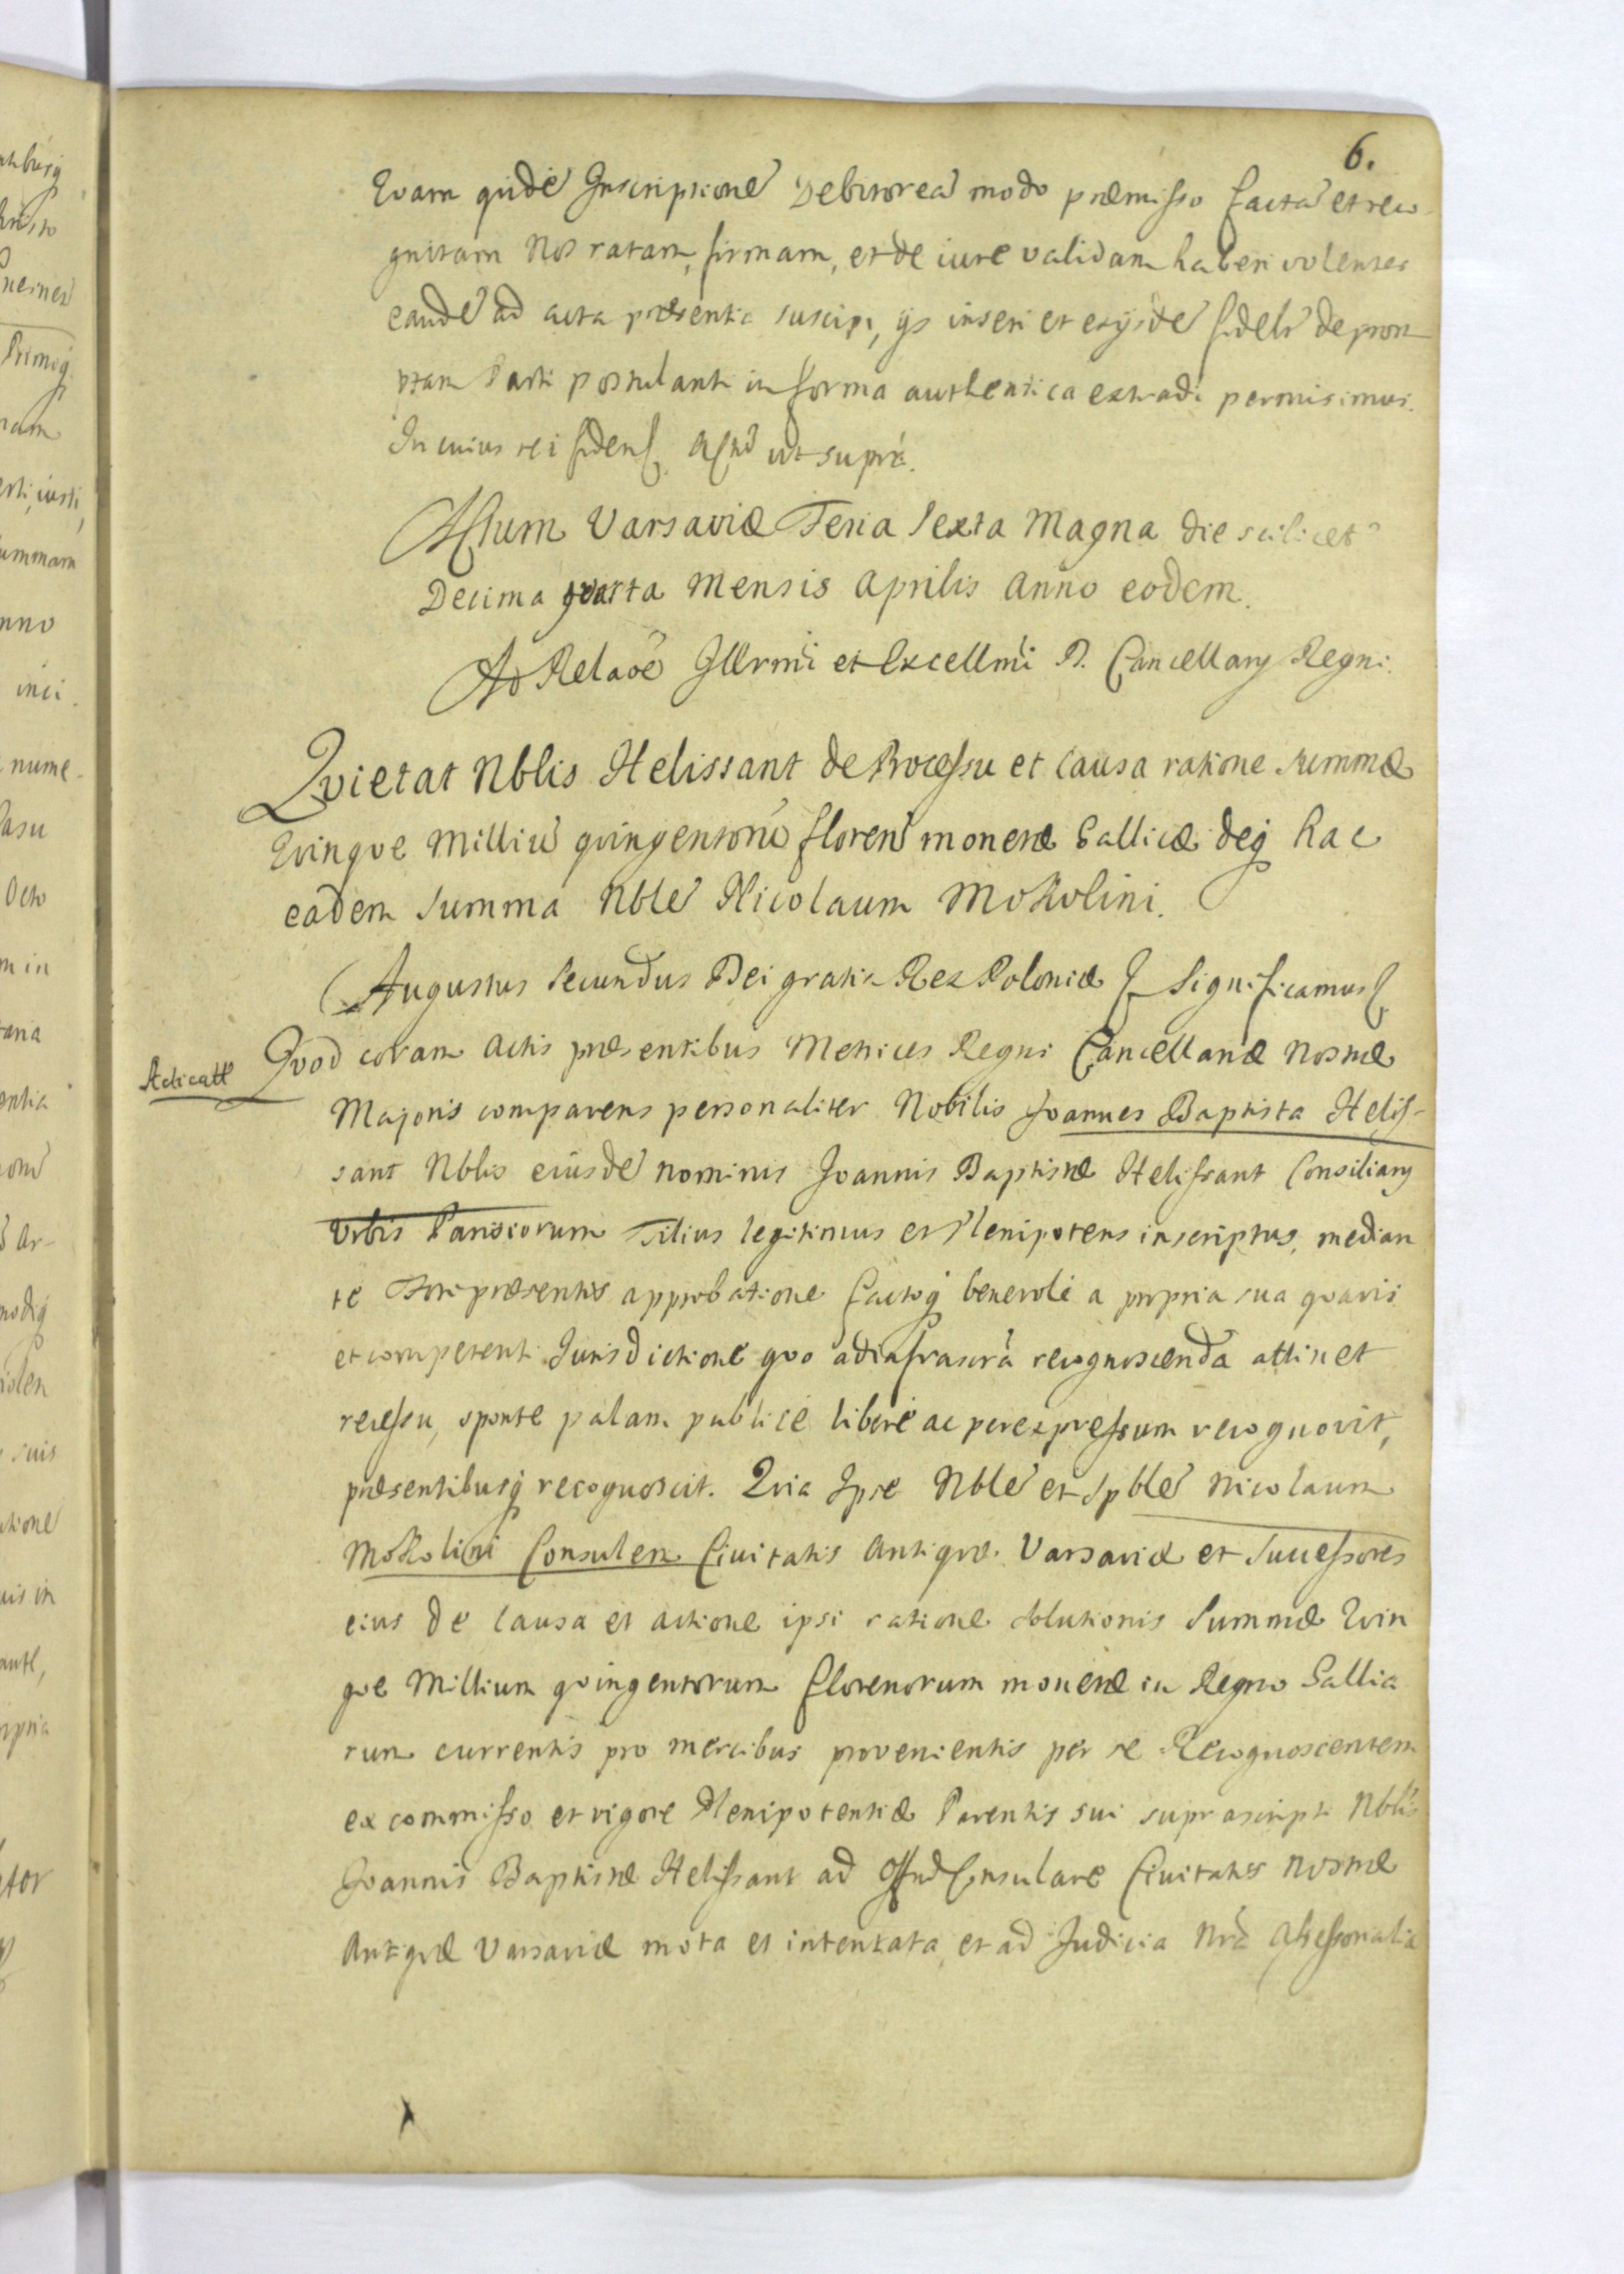 6.
Qvam qvidẽ Inscriptionẽ Debitoreã modo præmisso factã et reco-
gnitam Nos ratam, firmam, et de iure validam haberi volentes
eandẽ ad acta præsentia suscipi, ijs inseri et ex ijsdẽ fidelr̃ deprom
ptam Parti postulanti in forma authentica extradi permisimus.
In cuius rei fidem Actũ ut supra.
Actum Varsaviæ Feria Sexta Magna die scilicet
Decima qvarta Mensis Aprilis Anno eodem.
Ad Relaõe Illrmi et Excellmi D. Cancellarÿ Regni.
Qvietat Nblis Helissant de Processu et causa ratione summæ
Qvinqve Milliũ qvingentorũ florenũ monetæ Gallicæ deq̃ hac
eadem summa Nblẽ Nicolaum Mokolini.
Augustus Secundus Dei gratia Rex Poloniæ Significamus
Qvod coram Actis præsentibus Metrices Regni Cancellariæ Nostræ
Majoris comparens personaliter Nobilis Joannes Baptista Helis-
sant Nblis eiusdẽ nominis Joannis Baptistæ Helissant Consiliarÿ
Urbis Parisiorum Filius legitimus et Plenipotens inscriptus, median
te Fori præsentis approbatione factoq̃ benevole a propria sua qvavis
et competenti Jurisdictione qvo ad infrascrã recognoscenda attinet
recessu, sponte palam publicè liberè ac per expressum recognovit,
præsentibusq̃ recognoscit. Qvia Ipse Nblẽ et Spblẽ Nicolaum
Mokolini Consulem Civitatis Antiqvæ Varsaviæ et Successores
eius de causa et actione ipsi ratione solutionis Summæ Qvin
qve Millium qvingentorum florenorum monetæ in Regno Gallia
rum currentis pro mercibus provenientis per se Recognoscentem
ex commisso et vigore Plenipotentiæ Parentis sui suprascripti Nblis
Joannis Baptistæ Helissant ad Offm̃ Consulare Civitatis Nostræ
Antiqvæ Varsaviæ mota et intentata, et ad Judicia Nrã Assessorialia